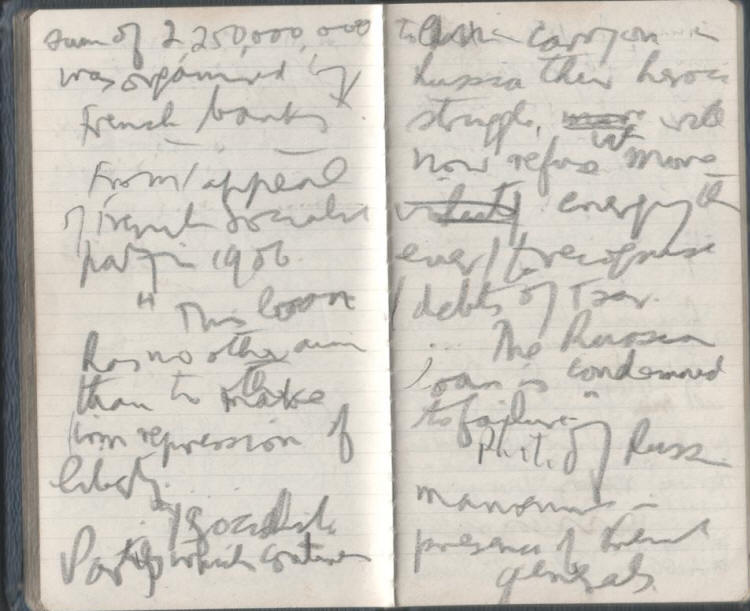 sum of 2 250,000,000
was organised by
French banks.
From appeal
of French Socialist
party in 1906
" This loan
has no other aim
than to make
repression of
liberty.
Socialist
Parties which continue
to carry on in
Russia their heroic
struggle, will
now refuse with more
energy than
ever to recognise
debts of Tsar.
... The Russian
loan is condemned
to failure"
Phot. of Russ
manoeuvres in
presence of French
generals.